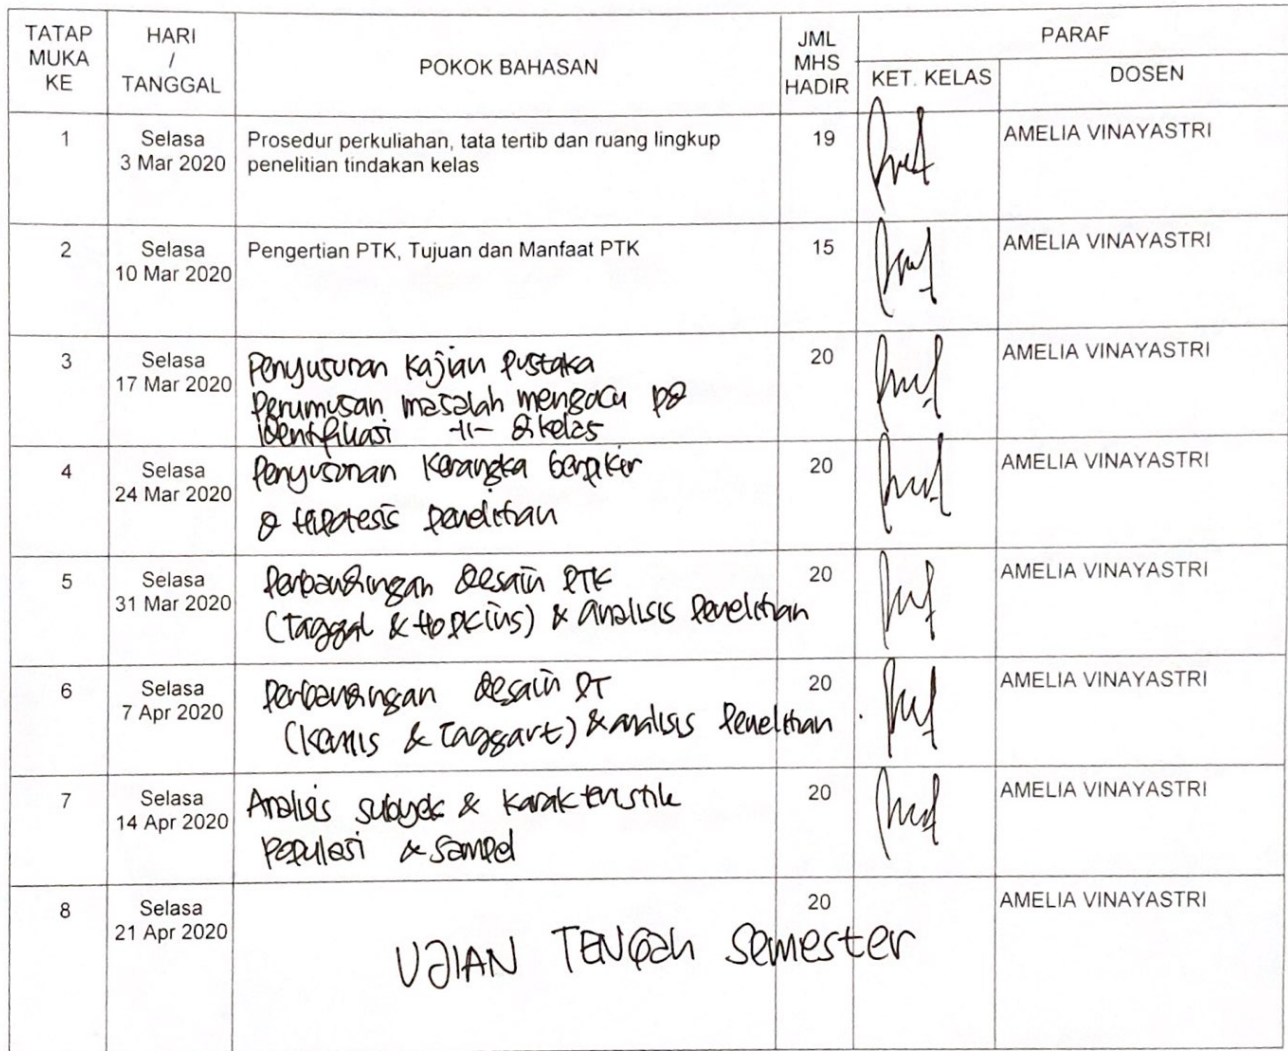 TATAP MUKA KE
HARI / TANGGAL
POKOK BAHASAN
JML MHS HADIR
PARAF
KET. KELAS
DOSEN
1
Selasa
3 Mar 2020
Prosedur perkuliahan, tata tertib dan ruang lingkup
penelitian tindakan kelas
19
AMELIA VINAYASTRI
2
Selasa
10 Mar 2020
Pengertian PTK, Tujuan dan Manfaat PTK
15
AMELIA VINAYASTRI
3
Selasa
17 Mar 2020
Penyusunan Kajian Pustaka
Perumusan masalah mengacu pd
identifikasi -11- di kelas
20
AMELIA VINAYASTRI
4
Selasa
24 Mar 2020
Penyusunan Kerangka berpikir
& Hipotesis penelitian
20
AMELIA VINAYASTRI
5
Selasa
31 Mar 2020
Perbandingan desain PTK
(Taggal & Hopkins) & analisis penelitian
20
AMELIA VINAYASTRI
6
Selasa
7 Apr 2020
Perbandingan desain PT
(Kemis & Taggart) & analisis penelitian
20
AMELIA VINAYASTRI
7
Selasa
14 Apr 2020
Analisis subyek & karakteristik
populasi & sampel
20
AMELIA VINAYASTRI
8
Selasa
21 Apr 2020
UJIAN TENGah Semester
20
AMELIA VINAYASTRI